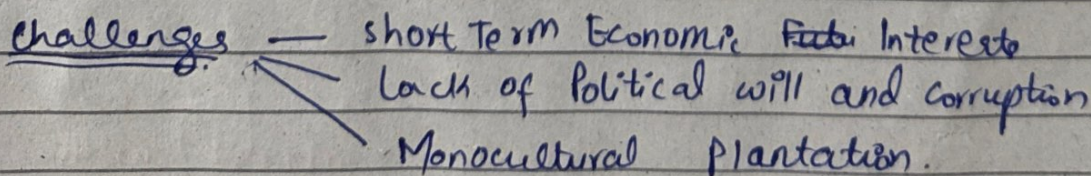 Challenges — Short Term Economic Interests
Lack of Political will and corruption
Monocultural Plantation.